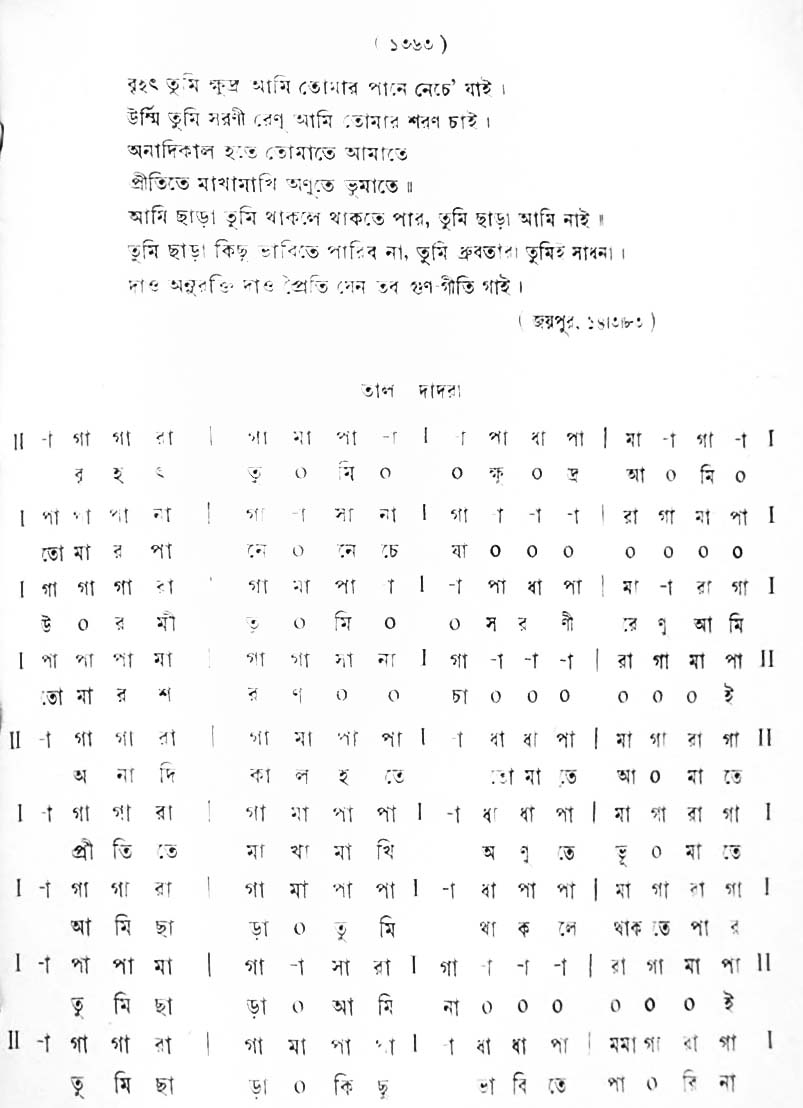 ( ১৩৬৩ )
বৃহৎ তুমি ক্ষুদ্র আমি তোমার পানে নেচে' যাই ।
ঊর্ম্মি তুমি সরণী রেণু আমি তোমার শরণ চাই ।
অনাদিকাল হতে তোমাতে আমাতে
প্রীতিতে মাখামাখি অণুতে ভূমাতে ॥
আমি ছাড়া তুমি থাকলে থাকতে পার, তুমি ছাড়া আমি নাই ॥
তুমি ছাড়া কিছু ভাবিতে পারিব না, তুমি ধ্রুবতারা তুমিই সাধনা ।
দাও অনুরক্তি দাও প্রৈতি যেন তব গুণ-গীতি গাই ।
( জয়পুর, ১৪।৩।৮৩ )
তাল দাদরা
II -া গা গা রা | গা মা পা -া I -া পা ধা পা | মা -া গা -া I
বৃ হ ৎ তু ০ মি ০ ০ ক্ষু ০ দ্র আ ০ মি ০
I পা পা পা না | গা -া সা না I গা -া -া -া | রা গা মা পা I
তো মা র পা নে ০ নে চে যা ০ ০ ০ ০ ০ ০ ০
I গা গা গা রা | গা মা পা -া I -া পা ধা পা | মা -া রা গা I
উ ০ র মী তু ০ মি ০ ০ স র ণী রে ণু আ মি
I পা পা পা মা | গা গা সা না I গা -া -া -া | রা গা মা পা II
তো মা র শ র ণ ০ ০ চা ০ ০ ০ ০ ০ ০ ই
II -া গা গা রা | গা মা পা পা I -া ধা ধা পা | মা গা রা গা II
অ না দি কা ল হ তে তো মা তে আ ০ মা তে
I -া গা গা রা | গা মা পা পা I -া ধা ধা পা | মা গা রা গা I
প্রী তি তে মা খা মা খি অ ণু তে ভূ ০ মা তে
I -া গা গা রা | গা মা পা পা I -া ধা পা পা | মা গা রা গা I
আ মি ছা ড়া ০ তু মি থা ক লে থাক তে পা র
I -া পা পা মা | গা -া সা রা I গা -া -া -া | রা গা মা পা II
তু মি ছা ড়া ০ আ মি না ০ ০ ০ ০ ০ ০ ই
II -া গা গা রা | গা মা পা পা I -া ধা ধা পা | মমা গা রা গা I
তু মি ছা ড়া ০ কি ছু ভা বি তে পা ০ রি না